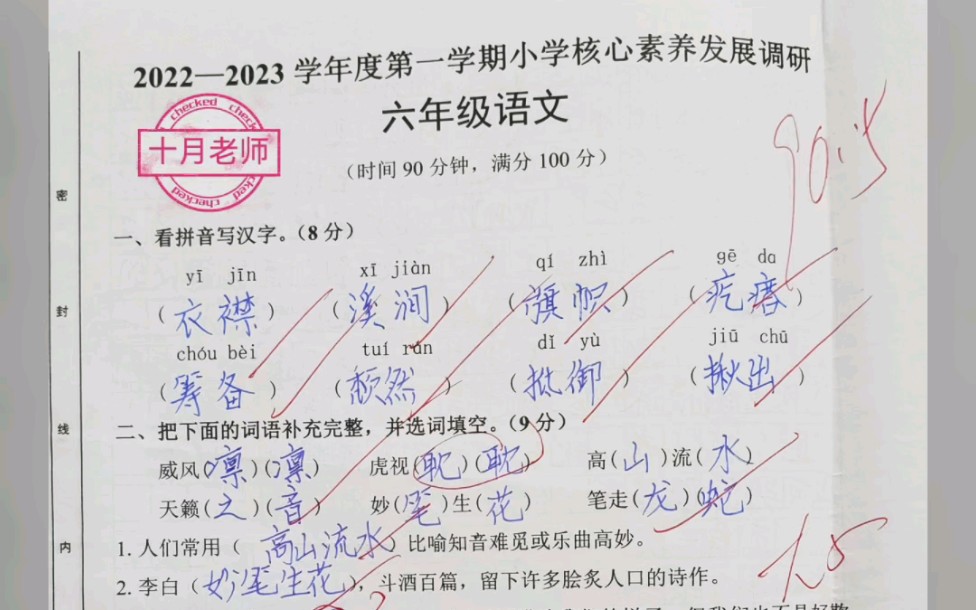 2022—2023 学年度第一学期小学核心素养发展调研
六年级语文
checked
十月老师
(时间 90 分钟，满分 100 分)
90.5
密
封
线
内
一、看拼音写汉字。(8 分)
yī jīn xī jiàn qí zhì gē da
(衣襟) (溪涧) (旗帜) (疙瘩)
chóu bèi tuí rán dǐ yù jiū chū
(筹备) (颓然) (抵御) (揪出)
二、把下面的词语补充完整，并选词填空。(9 分)
威风(凛)(凛) 虎视(耽)(耽) 高(山)流(水)
天籁(之)(音) 妙(笔)生(花) 笔走(龙)(蛇)
1. 人们常用(高山流水)比喻知音难觅或乐曲高妙。
2. 李白(妙笔生花)，斗酒百篇，留下许多脍炙人口的诗作。